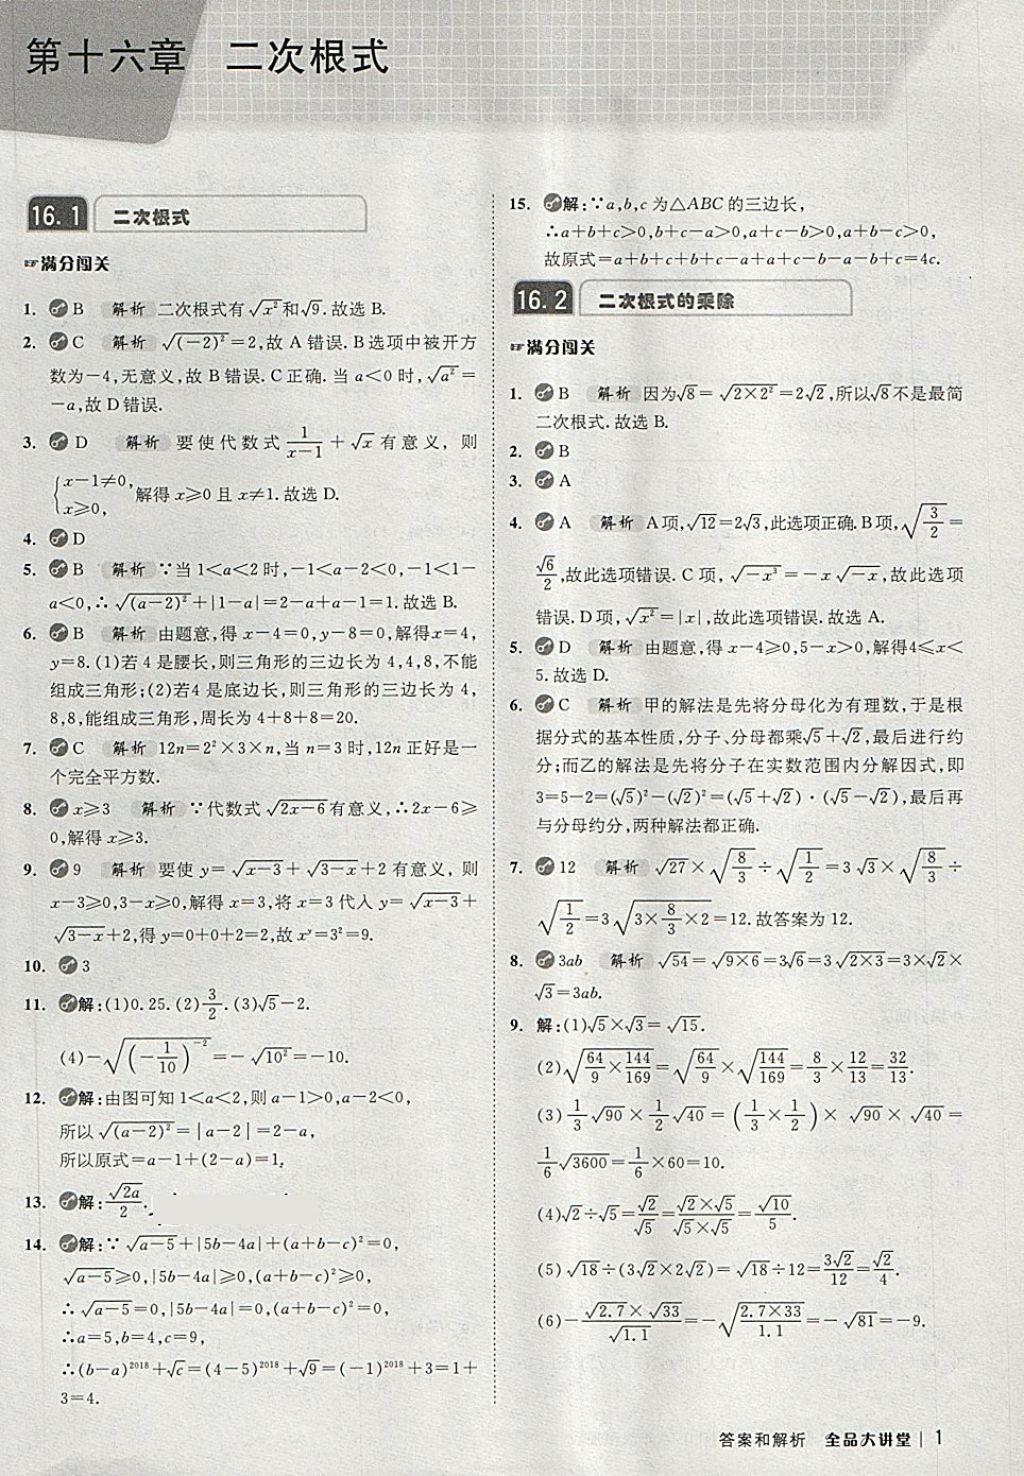 第十六章 二次根式
16.1 二次根式
☞满分闯关
1. B 解析 二次根式有√x²和√9.故选 B.
2. C 解析 √(-2)²=2,故 A 错误.B选项中被开方
数为-4,无意义,故 B 错误.C正确.当 a<0 时,√a²=
-a,故 D 错误.
3. D 解析 要使代数式 1/(x-1) + √x 有意义, 则
{x-1≠0, x≥0, 解得 x≥0 且 x≠1.故选 D.
4. D
5. B 解析 ∵当 1<a<2 时,-1<a-2<0,-1<1-
a<0,∴√(a-2)²+|1-a|=2-a+a-1=1.故选 B.
6. B 解析 由题意,得 x-4=0,y-8=0,解得x=4,
y=8.(1)若 4 是腰长,则三角形的三边长为 4,4,8,不能
组成三角形;(2)若4 是底边长,则三角形的三边长为 4,
8,8,能组成三角形,周长为 4+8+8=20.
7. C 解析 12n=2²×3×n,当 n=3 时,12n 正好是一
个完全平方数.
8. x≥3 解析 ∵代数式√(2x-6)有意义,∴2x-6≥
0,解得 x≥3.
9. 9 解析 要使 y=√(x-3)+√(3-x)+2 有意义, 则
x-3≥0,3-x≥0,解得 x=3,将 x=3 代入 y=√(x-3)+
√(3-x)+2,得 y=0+0+2=2,故 xʸ=3²=9.
10. 3
11. 解:(1)0.25.(2)3/2.(3)√5-2.
(4)-√(-1/10)⁻²=-√10²=-10.
12. 解:由图可知 1<a<2,则 a-1>0,a-2<0,
所以√(a-2)²=|a-2|=2-a,
所以原式=a-1+(2-a)=1.
13. 解:√2a/2.
14. 解:∵√(a-5)+|5b-4a|+(a+b-c)²=0,
√(a-5)≥0,|5b-4a|≥0,(a+b-c)²≥0,
∴√(a-5)=0,|5b-4a|=0,(a+b-c)²=0,
∴a=5,b=4,c=9,
∴(b-a)²⁰¹⁸+√c=(4-5)²⁰¹⁸+√9=(-1)²⁰¹⁸+3=1+
3=4.
15. 解:∵a,b,c 为△ABC 的三边长,
∴a+b+c>0,b+c-a>0,a+c-b>0,a+b-c>0,
故原式=a+b+c+b+c-a+a+c-b-a-b+c=4c.
16.2 二次根式的乘除
☞满分闯关
1. B 解析 因为√8=√(2×2²)=2√2,所以√8不是最简
二次根式.故选 B.
2. B
3. A
4. A 解析 A项,√12=2√3,此选项正确.B项,√(3/2)=
√6/2,故此选项错误.C 项,√(-x³)=-x√(-x),故此选项
错误.D项,√x²=|x|,故此选项错误.故选 A.
5. D 解析 由题意,得 x-4≥0,5-x>0,解得4≤x<
5.故选 D.
6. C 解析 甲的解法是先将分母化为有理数,于是根
据分式的基本性质,分子、分母都乘√5+√2,最后进行约
分;而乙的解法是先将分子在实数范围内分解因式,即
3=5-2=(√5)²-(√2)²=(√5+√2)·(√5-√2),最后再
与分母约分,两种解法都正确.
7. 12 解析 √27×√(8/3)÷√(1/2)=3√3×√(8/3)÷
√(1/2)=3√(3×8/3×2)=12.故答案为 12.
8. 3ab 解析 √54=√(9×6)=3√6=3√(2×3)=3×√2×
√3=3ab.
9. 解:(1)√5×√3=√15.
(2)√(64/9×144/169)=√(64/9)×√(144/169)=8/3×12/13=32/13.
(3)1/3√90×1/2√40=(1/3×1/2)×√90×√40=
1/6√3600=1/6×60=10.
(4)√2÷√5=√2/√5=(√2×√5)/(√5×√5)=√10/5.
(5)√18÷(3√2×2√2)=√18÷12=3√2/12=√2/4.
(6)-(√2.7×√33)/√1.1=-√((2.7×33)/1.1)=-√81=-9.
答案和解析 全品大讲堂 | 1